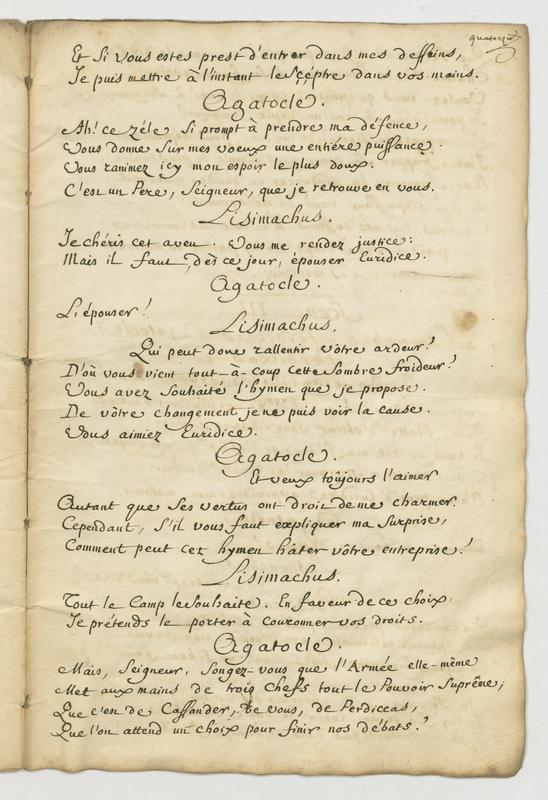 quatorze
Et Si vous estes prest d'entrer dans mes desseins,
Je puis mettre à l'instant le Sceptre dans vos mains.
Agatocle.
Ah! ce zéle si prompt à prendre ma défence,
Vous donne sur mes voeux une entiére puissance.
Vous ranimez icy mon espoir le plus doux.
C'est un Pere, Seigneur, que je retrouve en vous.
Lisimachus.
Je chéris cet aveu. Vous me rendez justice:
Mais il faut, dès ce jour, épouser Euridice.
Agatocle.
L'épouser!
Lisimachus.
Qui peut donc rallentir vôtre ardeur?
D'où vous vient tout-à-coup cette sombre froideur?
Vous avez souhaité l'hymen que je propose.
De vôtre changement je ne puis voir la cause.
Vous aimiez Euridice.
Agatocle.
Et veux toûjours l'aimer
Autant que ses vertus ont droit de me charmer.
Cependant, s'il vous faut expliquer ma surprise,
Comment peut cet hymen hâter vôtre entreprise?
Lisimachus.
Tout le Camp le souhaite. En faveur de ce choix,
Je prétends le porter à couronner vos droits.
Agatocle.
Mais, Seigneur, songez-vous que l'Armée elle-même
Met aux mains de trois Chefs tout le Pouvoir Suprême;
Que c'en de Cassander, de vous, de Perdiccas,
Que l'on attend un choix pour finir nos débats?